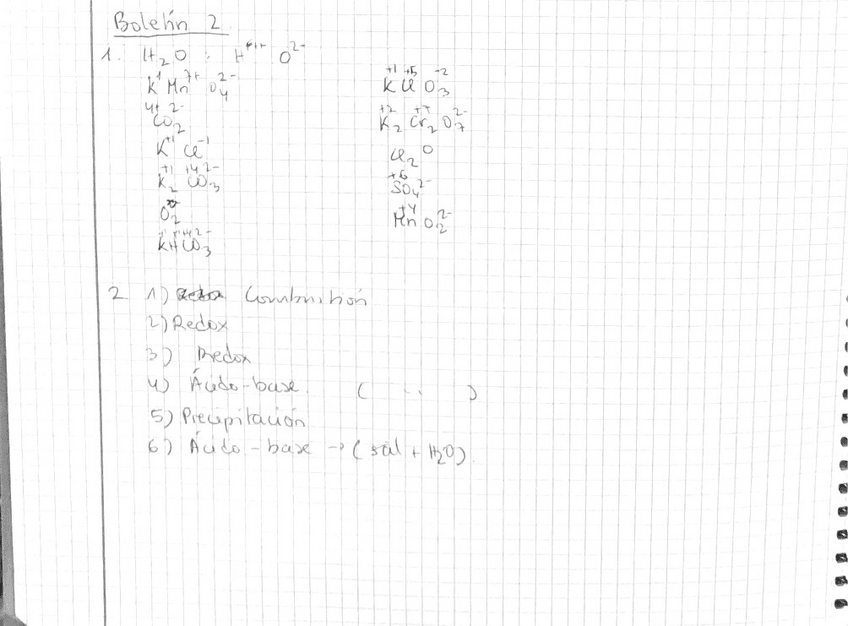 Boletín 2
1. H₂O : H⁺¹⁺ O²⁻
K¹ Mn⁷⁺ O₄²⁻
C⁴⁺O₂²⁻
K⁺¹ Cl⁻¹
K₂⁺¹ C⁺⁴O₃²⁻
O₂
K⁺H⁺C⁺⁴O₃²⁻
K⁺¹ Cl⁺⁵ O₃⁻²
K₂⁺² Cr₂⁺⁷ O₇²⁻
Cl₂⁰
S⁺⁶O₄²⁻
Mn⁺⁴ O₂²⁻
2 1) Combustión
2) Redox
3) Redox
4) Ácido-base. ( .. )
5) Precipitación
6) Ácido-base → (sal + H₂O).